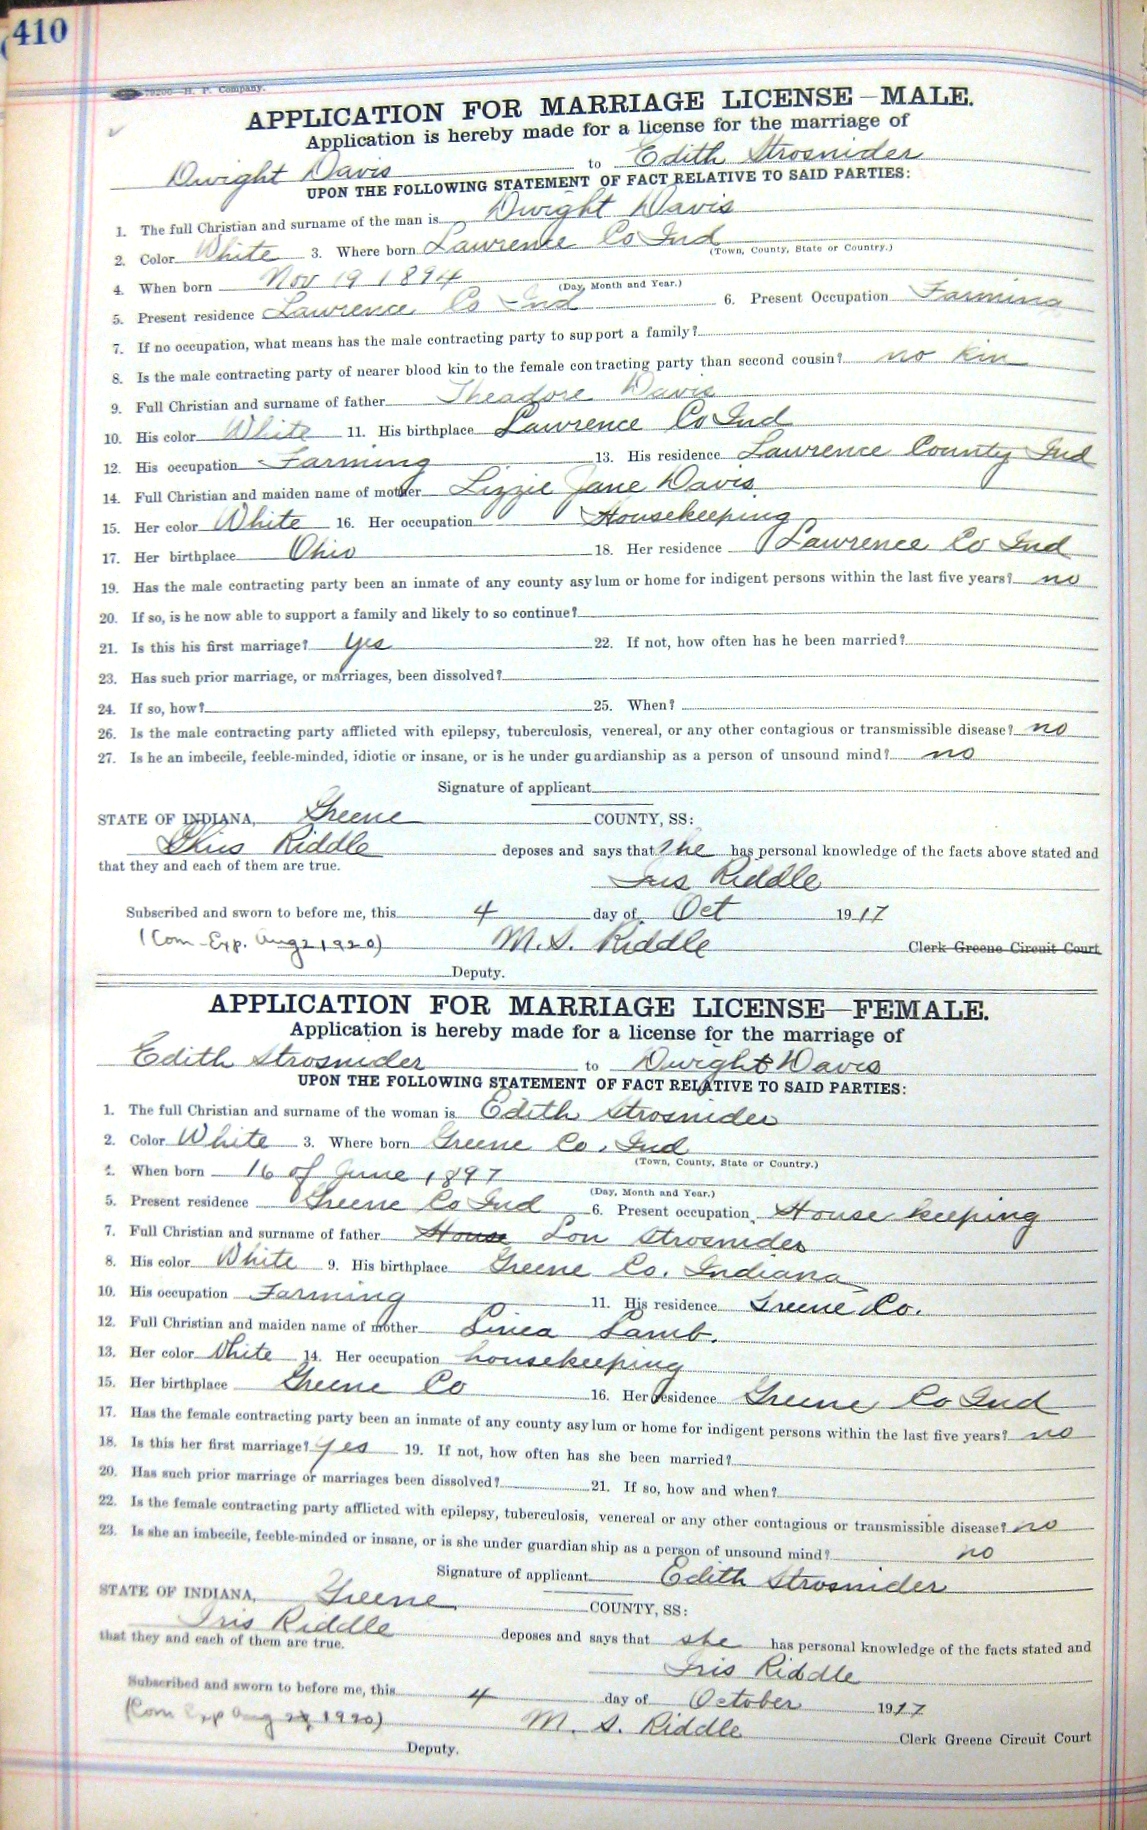 410
79200—H. P. Company.
APPLICATION FOR MARRIAGE LICENSE—MALE.
Application is hereby made for a license for the marriage of
Dwight Davis to Edith Strosnider
UPON THE FOLLOWING STATEMENT OF FACT RELATIVE TO SAID PARTIES:
1. The full Christian and surname of the man is Dwight Davis
2. Color White 3. Where born Lawrence Co Ind
(Town, County, State or Country.)
4. When born Nov 19 1894
(Day, Month and Year.)
5. Present residence Lawrence Co Ind 6. Present Occupation Farming
7. If no occupation, what means has the male contracting party to support a family?
8. Is the male contracting party of nearer blood kin to the female contracting party than second cousin? no kin
9. Full Christian and surname of father Theadore Davis
10. His color White 11. His birthplace Lawrence Co Ind
12. His occupation Farming 13. His residence Lawrence County Ind
14. Full Christian and maiden name of mother Lizzie Jane Davis
15. Her color White 16. Her occupation Housekeeping
17. Her birthplace Ohio 18. Her residence Lawrence Co Ind
19. Has the male contracting party been an inmate of any county asylum or home for indigent persons within the last five years? no
20. If so, is he now able to support a family and likely to so continue?
21. Is this his first marriage? yes 22. If not, how often has he been married?
23. Has such prior marriage, or marriages, been dissolved?
24. If so, how? 25. When?
26. Is the male contracting party afflicted with epilepsy, tuberculosis, venereal, or any other contagious or transmissible disease? no
27. Is he an imbecile, feeble-minded, idiotic or insane, or is he under guardianship as a person of unsound mind? no
Signature of applicant
STATE OF INDIANA, Greene COUNTY, SS:
Riddle deposes and says that she has personal knowledge of the facts above stated and
that they and each of them are true.
Iris Riddle
Subscribed and sworn to before me, this 4 day of Oct 1917
(Com-Exp. Aug 2 1920) M. S. Riddle Clerk Greene Circuit Court
Deputy.
APPLICATION FOR MARRIAGE LICENSE—FEMALE.
Application is hereby made for a license for the marriage of
Edith Strosnider to Dwight Davis
UPON THE FOLLOWING STATEMENT OF FACT RELATIVE TO SAID PARTIES:
1. The full Christian and surname of the woman is Edith Strosnider
2. Color White 3. Where born Greene Co. Ind
(Town, County, State or Country.)
4. When born 16 of June 1897
(Day, Month and Year.)
5. Present residence Greene Co Ind 6. Present occupation House keeping
7. Full Christian and surname of father House Lon Strosnider
8. His color White 9. His birthplace Greene Co. Indiana
10. His occupation Farming 11. His residence Greene Co.
12. Full Christian and maiden name of mother Lamb.
13. Her color White 14. Her occupation housekeeping
15. Her birthplace Greene Co 16. Her residence Greene Co Ind
17. Has the female contracting party been an inmate of any county asylum or home for indigent persons within the last five years? no
18. Is this her first marriage? yes 19. If not, how often has she been married?
20. Has such prior marriage or marriages been dissolved? 21. If so, how and when?
22. Is the female contracting party afflicted with epilepsy, tuberculosis, venereal or any other contagious or transmissible disease? no
23. Is she an imbecile, feeble-minded or insane, or is she under guardianship as a person of unsound mind? no
Signature of applicant Edith Strosnider
STATE OF INDIANA, Greene COUNTY, SS:
Iris Riddle deposes and says that she has personal knowledge of the facts stated and
that they and each of them are true.
Iris Riddle
Subscribed and sworn to before me, this 4 day of October 1917
(Com Exp Aug 1920) M. S. Riddle Clerk Greene Circuit Court
Deputy.